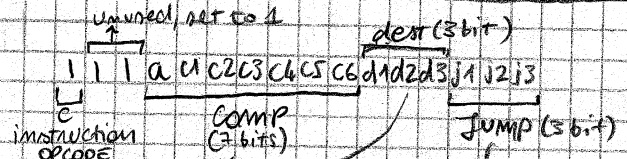 unused, set to 1
dest (3 bit)
1 1 1 a c1 c2 c3 c4 c5 c6 d1 d2 d3 j1 j2 j3
C
instruction
OPCODE
COMP
(7 bits)
JUMP (3 bit)